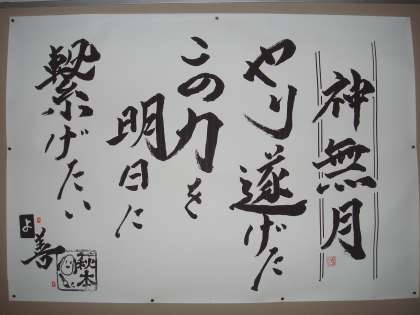 神無月
やり遂げた
この力を
明日に
繋げたい
よ
善
秋本